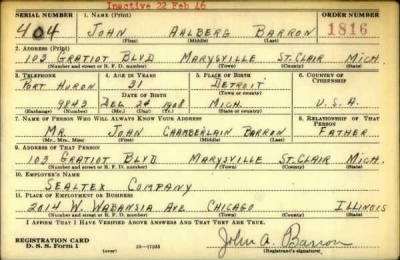 Inactive 22 Feb 46
SERIAL NUMBER 1. NAME (Print) ORDER NUMBER
404 JOHN AHLBERG BARRON 1816
(First) (Middle) (Last)
2. ADDRESS (Print)
103 GRATIOT BLVD MARYSVILLE ST. CLAIR MICH.
(Number and street or R. F. D. number) (Town) (County) (State)
3. TELEPHONE 4. AGE IN YEARS 5. PLACE OF BIRTH 6. COUNTRY OF CITIZENSHIP
PORT HURON 31 DETROIT
DATE OF BIRTH (Town or county)
9843 DEC 24 1908 MICH. U.S.A.
(Exchange) (Number) (Mo.) (Day) (Yr.) (State or country)
7. NAME OF PERSON WHO WILL ALWAYS KNOW YOUR ADDRESS 8. RELATIONSHIP OF THAT PERSON
MR. JOHN CHAMBERLAIN BARRON FATHER
(Mr., Mrs., Miss) (First) (Middle) (Last)
9. ADDRESS OF THAT PERSON
103 GRATIOT BLVD MARYSVILLE ST. CLAIR MICH.
(Number and street or R. F. D. number) (Town) (County) (State)
10. EMPLOYER'S NAME
SEALTEX COMPANY
11. PLACE OF EMPLOYMENT OR BUSINESS
2014 W. WABANSIA AVE CHICAGO ILLINOIS
(Number and street or R. F. D. number) (Town) (County) (State)
I AFFIRM THAT I HAVE VERIFIED ABOVE ANSWERS AND THAT THEY ARE TRUE.
REGISTRATION CARD
D. S. S. Form 1 (over) 16—17105 John A. Barron
(Registrant's signature)